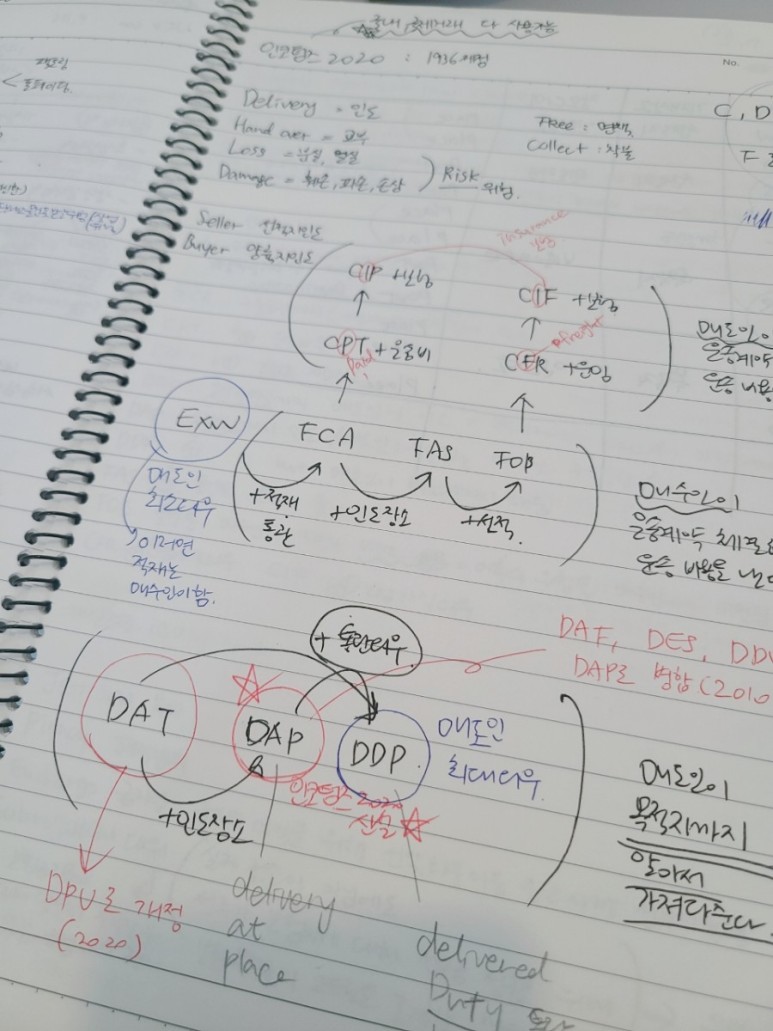 ☆국내, 국제거래 다 사용가능
인코텀즈 2020 : 1936제정
No.
Delivery = 인도
Hand over = 교부
Loss = 분실, 멸실
Damage = 훼손, 파손, 손상
) Risk
위험.
Free : 면책,
Collect : 착불
C, D
F
Seller 선적지인도
Buyer 양륙지인도
insurance
보험
CIP +보험
CIF +보험
CPT +운송비
Paid
freight
CFR +운임
매도인이
운송계약
운송 비용
EXW
FCA
FAS
FOB
+적재
통관
+인도장소
+선적.
매도인
최소의무
매수인이함.
매수인이
운송계약 체결
운송 비용을 낸다
+ 통관의무
DAF, DES, DDU
DAP로 병합 (2010
DAT
☆
DAP
DDP
매도인
최대의무
+인도장소
인코텀즈 2020
신설 ☆
DPU로 개정
(2020)
delivery
at
place
delivered
Duty
매도인이
목적지까지
알아서
가져다준다.